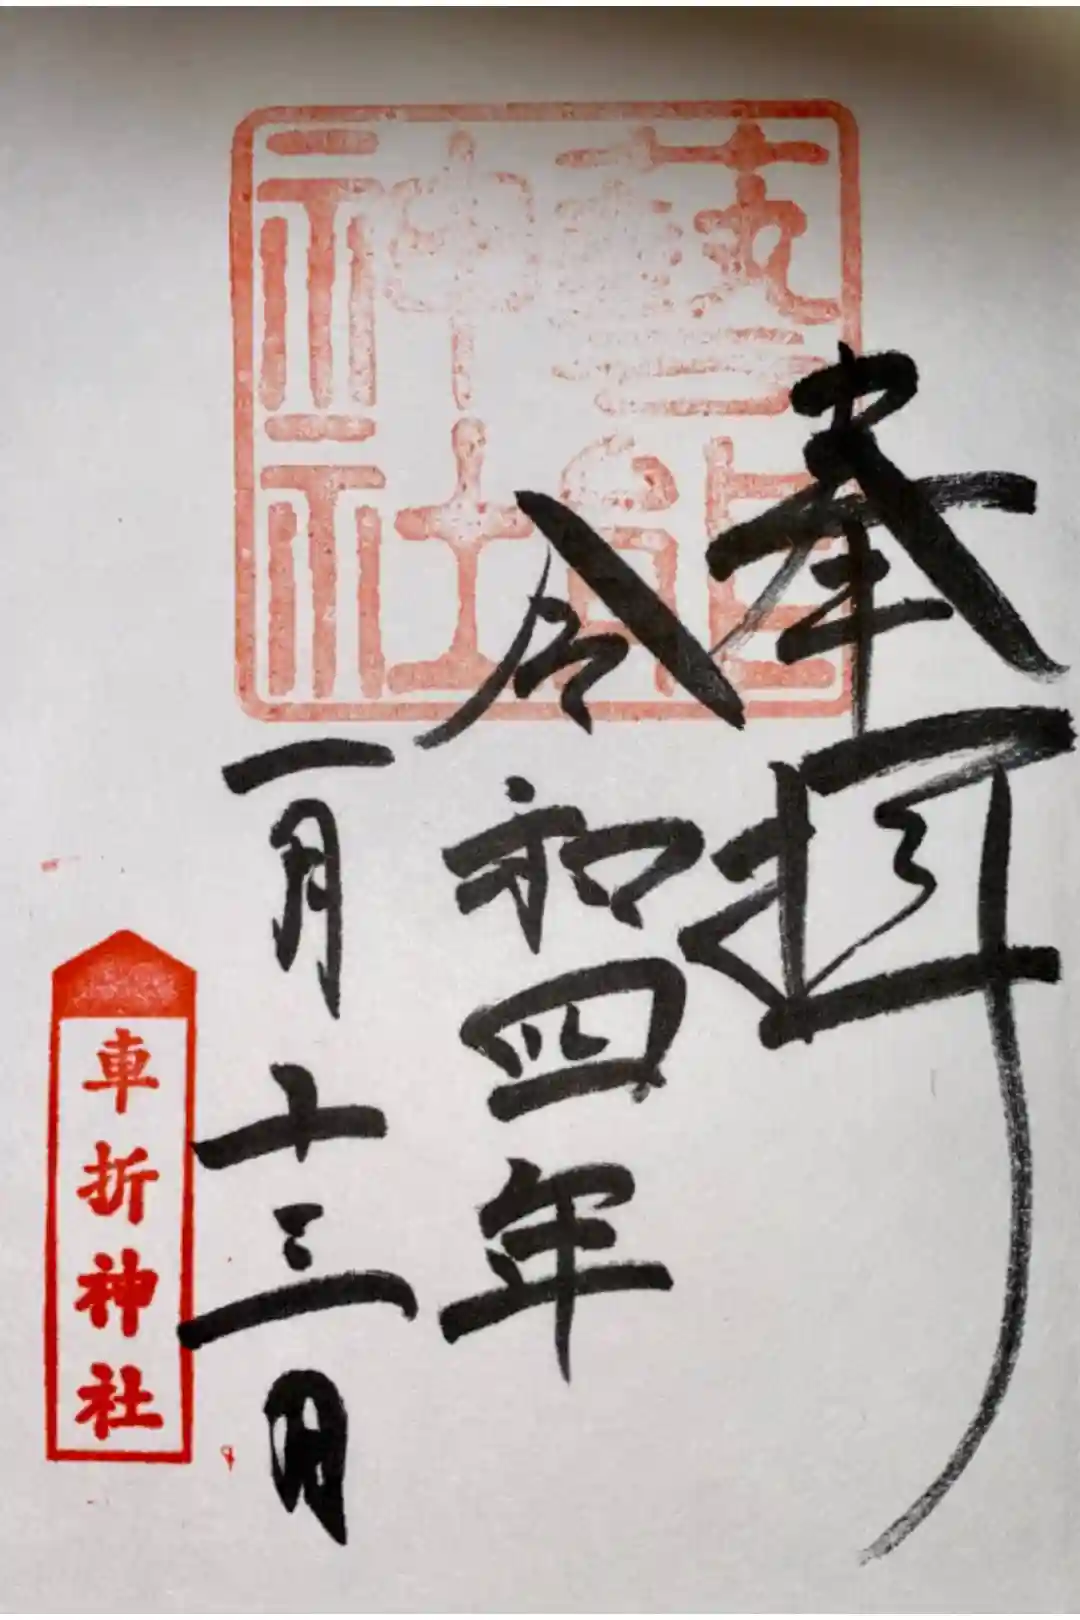 奉拝
藝能
神社
令和四年
一月十三日
車折神社